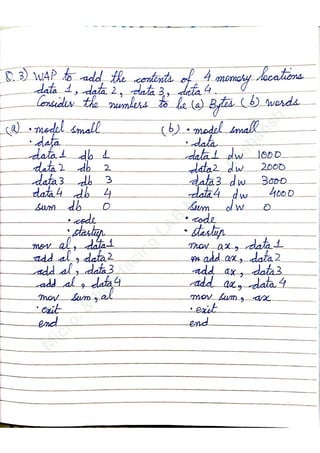 Q.3) WAP to add the contents of 4 memory locations
data 1, data 2, data 3, data 4.
Consider the numbers to be (a) Bytes (b) words
(a) .model small
.data
data 1 db 1
data 2 db 2
data 3 db 3
data 4 db 4
sum db 0
.code
.startup
mov al, data 1
add al, data 2
add al, data 3
add al, data 4
mov sum, al
.exit
end
(b) .model small
.data
data 1 dw 1000
data 2 dw 2000
data 3 dw 3000
data 4 dw 4000
sum dw 0
.code
.startup
mov ax, data 1
add ax, data 2
add ax, data 3
add ax, data 4
mov sum, ax
.exit
end